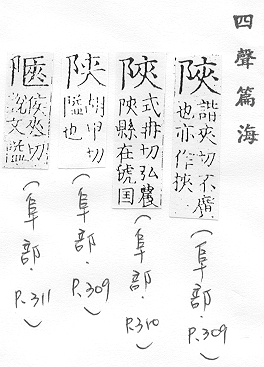 四聲篇海
陜
諧夾切不廣
也亦作挾
(阜部. P.309)
陝
式冉切弘農
陝縣在虢国
(阜部. P.310)
陜
胡甲切
隘也
(阜部. P.309)
陿
侯夾切
說文隘
(阜部. P.311)